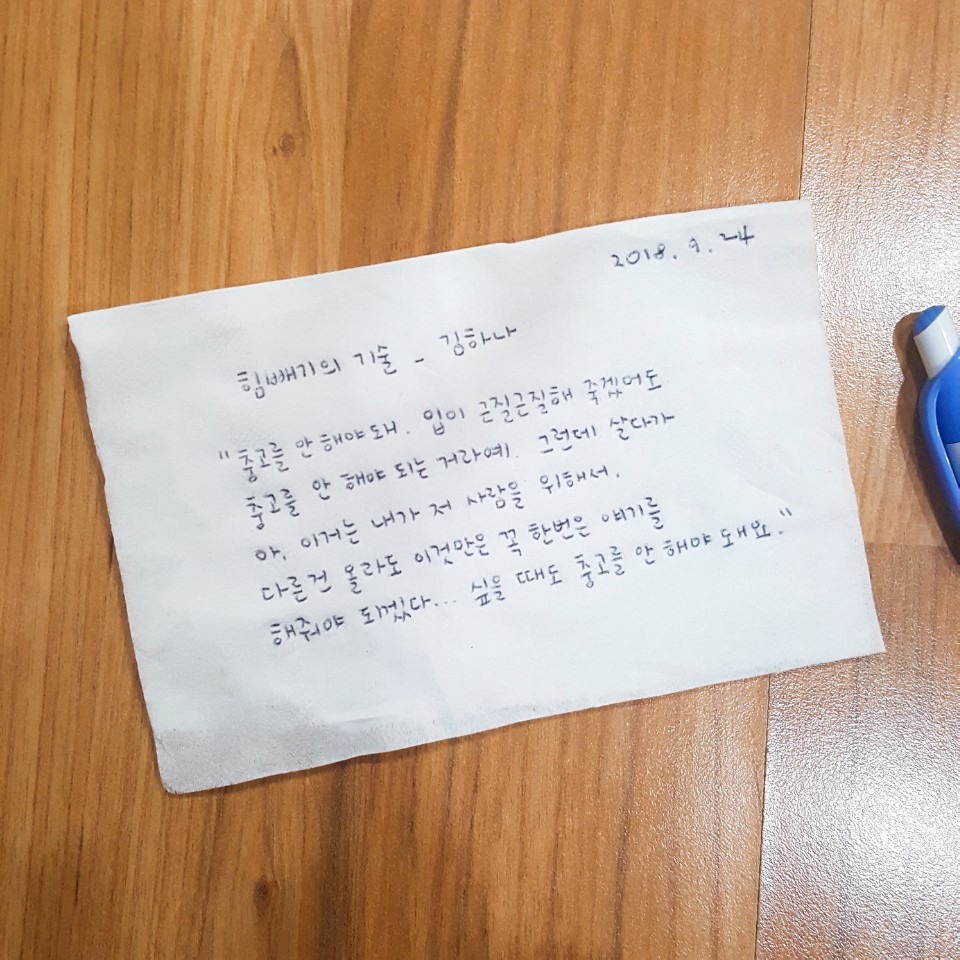 2018. 9. 24
힘빼기의 기술 - 김하나
"충고를 안 해야 돼. 입이 근질근질해 죽겠어도
충고를 안 해야 되는 거라예. 그런데 살다가
아, 이거는 내가 저 사람을 위해서.
다른건 몰라도 이것만은 꼭 한번은 얘기를
해줘야 되겠다... 싶을 때도 충고를 안 해야 돼요."